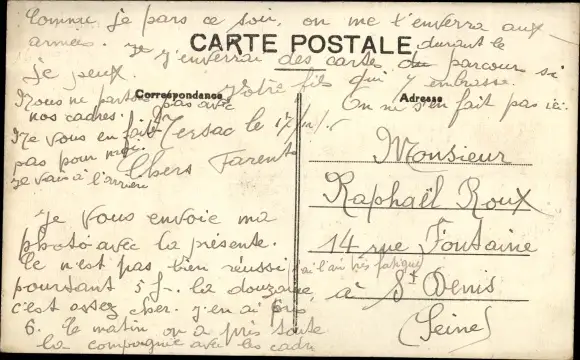 Comme je pars ce soir, on me l'enverra aux
armées. je
CARTE POSTALE
j'enverrai des cartes durant le parcours si
je peux.
Votre fils qui v embrasse.
Nous ne partons pas avec
nos cadres.
On ne s'en fait pas ici.
Correspondance
Adresse
Ne vous en faites
pas pour moi.
je vais à l'arrière
Mersac le 17/11/15
Chers Parents
Je vous envoie ma
photo avec la présente.
Ce n'est pas bien réussi
j'ai l'air très fatigué
pourtant 5 f. la douzaine,
c'est assez cher. j'en ai pris
6. Ce matin on a pris toute
la compagnie avec les cadres
Monsieur
Raphaël Roux
14 rue Fontaine
à St Denis
(Seine)